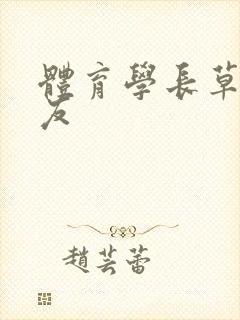 體育學長草
友
趙芸蕾